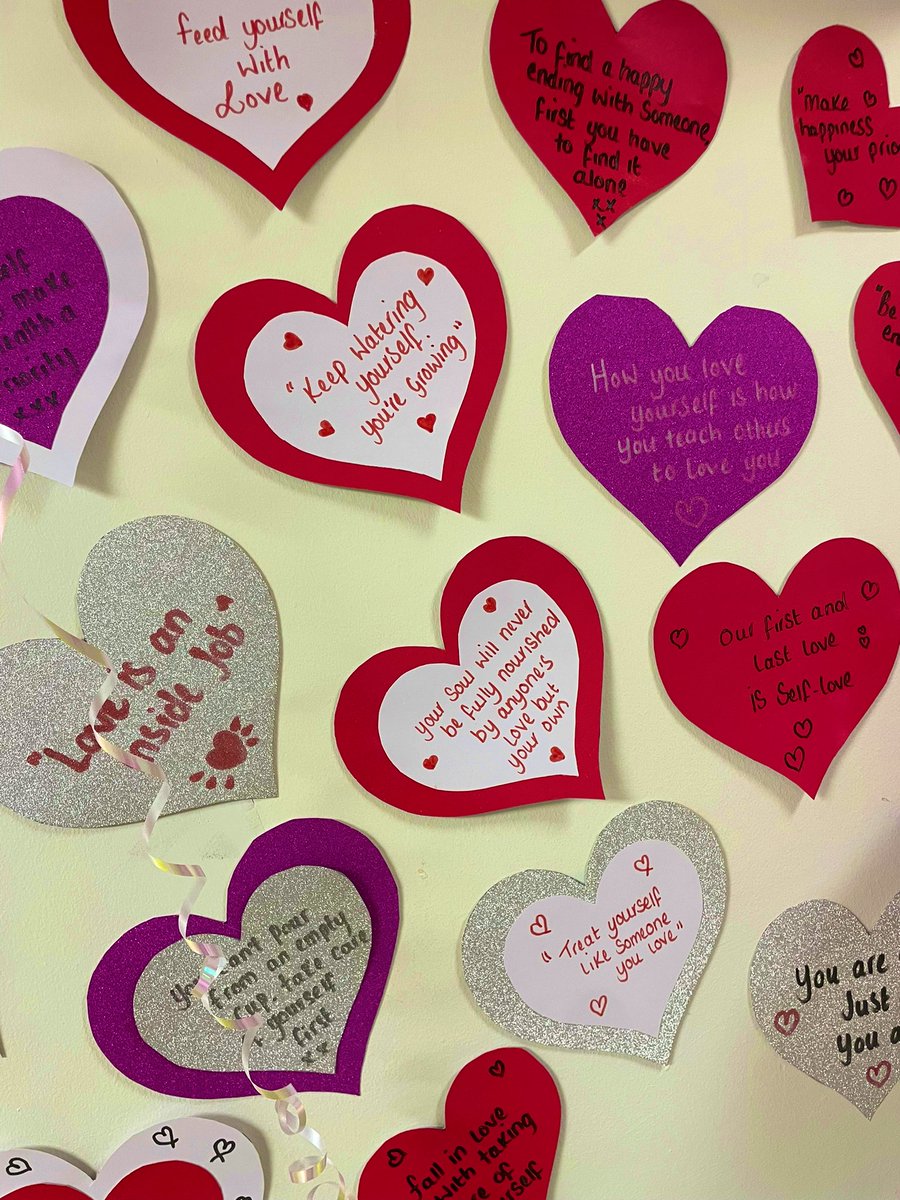 feed yourself
with
Love
To find a happy
ending with someone,
first you have
to find it
alone
xx
x
"Make
happiness
your
make
health a
xxx
"Keep Watering
yourself
you're Growing"
"Be
How you love
yourself is how
you teach others
to love you
"Love is an
inside Job
your soul will never
be fully nourished
by anyone's
love but
your own
Our first and
last love
is self-love
You can't pour
from an empty
cup. take care
yourself
first
xx
"Treat yourself
like someone
you love"
You are
Just
You
fall in love
with taking
of